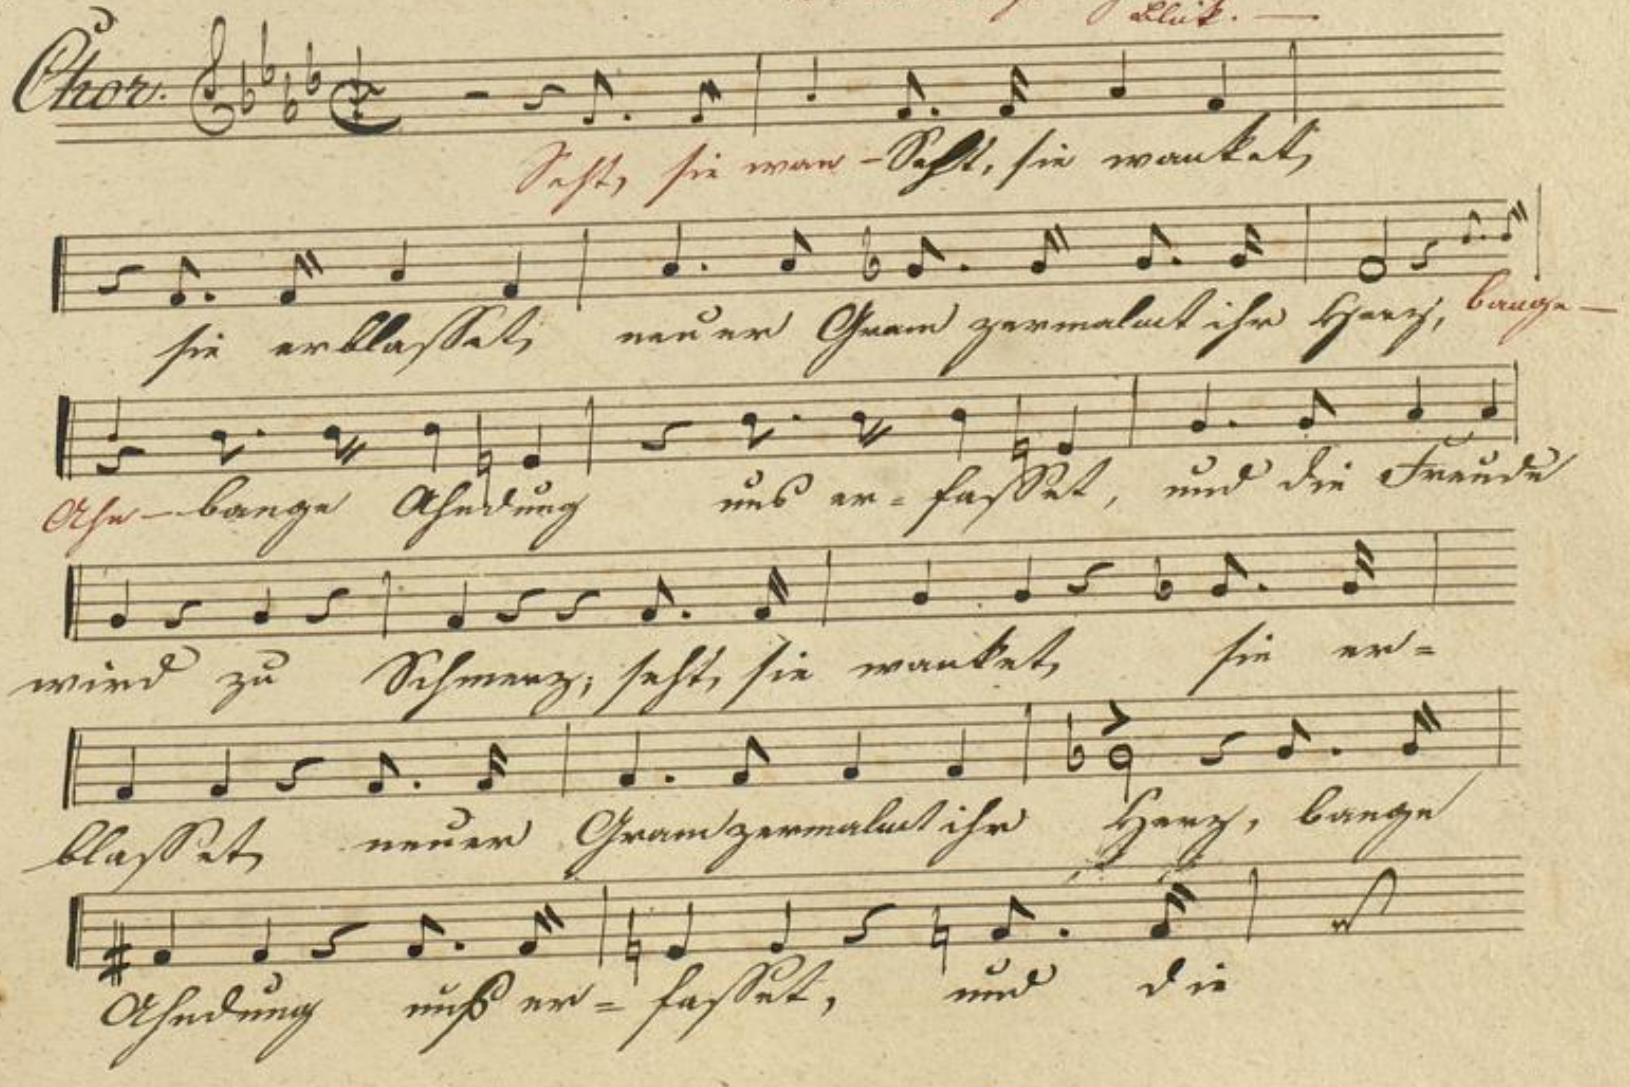 Blick. —
Chor.
Seht, sie wan – Seht, sie wanket,
sie erblasset, neuer Gram zermalmt ihr Herz, bange –
Ahn – bange Ahndung uns er= fasset, und die Freude
wird zu Schmerz; seht, sie wanket, sie er=
blasset, neuer Gram zermalmt ihr Herz, bange
Ahndung uns er= fasset, und die